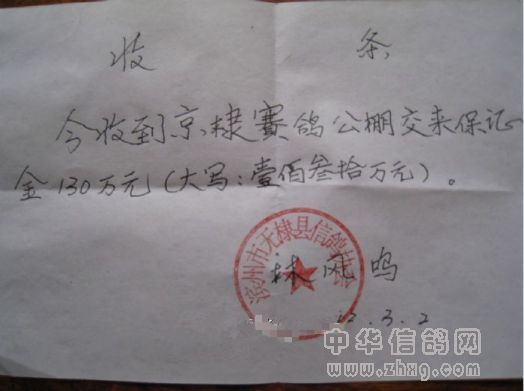 收 条
今收到京棣賽鸽公棚交来保证
金130万元(大写:壹佰叁拾万元)。
滨州市无棣县信鸽协会
林风鸣
12.3.2
中华信鸽网
www.zhxg.com